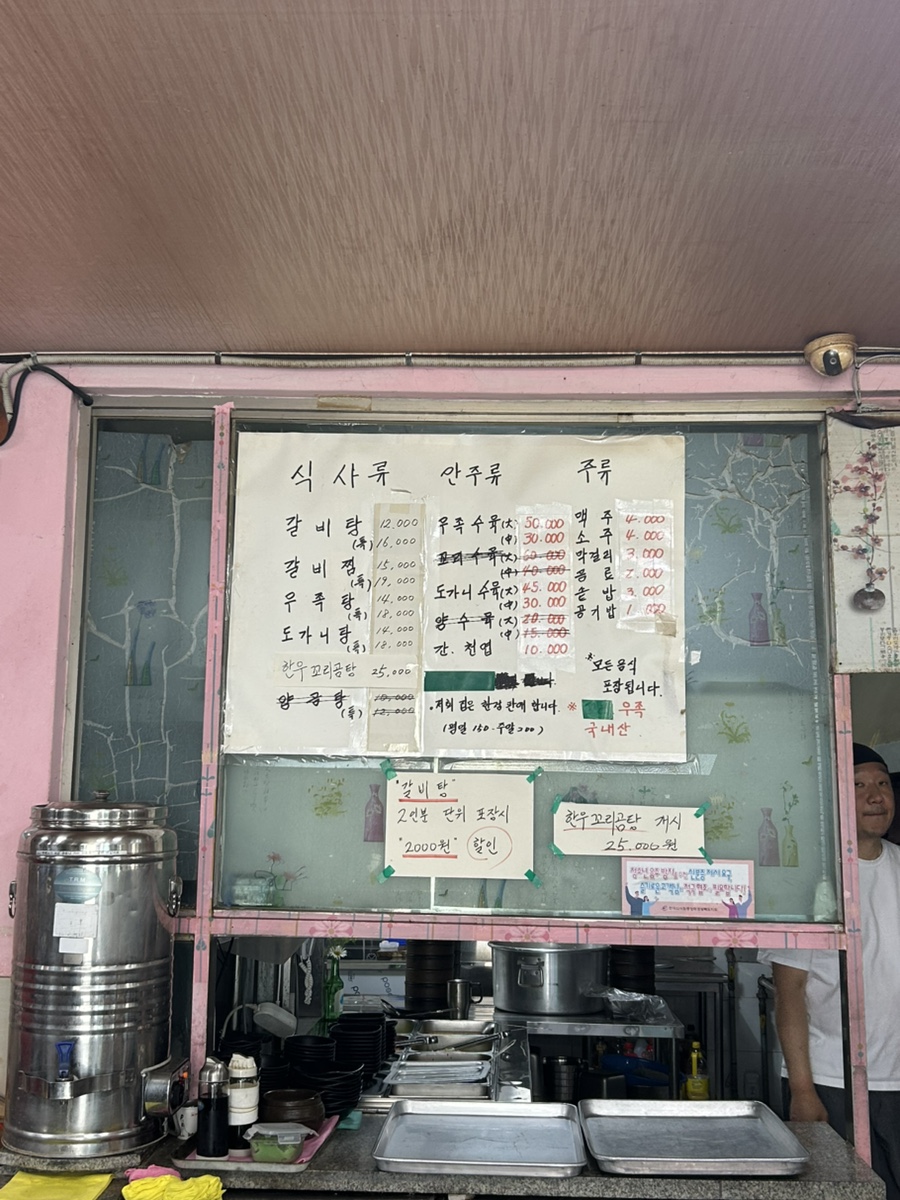 식사류
갈비탕 12.000
(특) 16.000
갈비찜 15.000
(특) 19.000
우족탕 14.000
(특) 18.000
도가니탕 14.000
(특) 18.000
한우꼬리곰탕 25,000
양곰탕 10.000
(특) 12.000
안주류
우족수육(大) 50.000
(中) 30.000
꼬리수육(大) 60.000
(中) 40.000
도가니수육(大) 45.000
(中) 30.000
양수육(大) 20.000
(中) 15.000
간.천엽 10.000
•저희 집은 한정 판매 합니다.
(평일 150-주말 200)
주류
맥주 4.000
소주 4.000
막걸리 3.000
음료 2.000
공기밥 1.000
*모든음식
포장됩니다.
※ 우족
국내산
"갈비탕"
2인분 단위 포장시
"2000원" 할인
한우꼬리곰탕 개시
25.000원